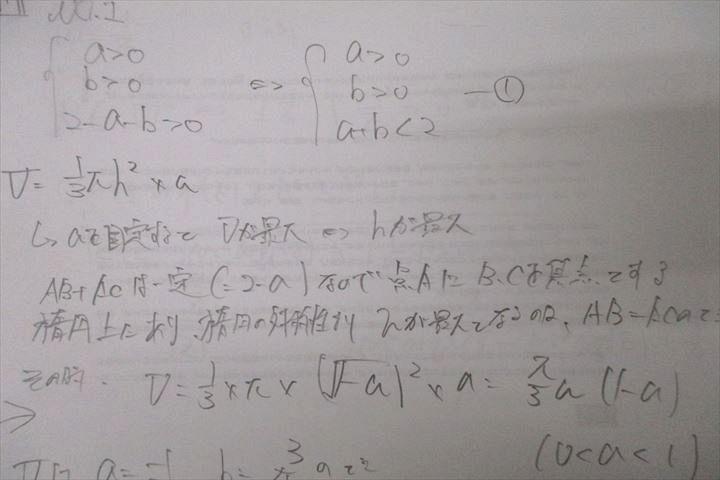 No.1
a>0 a>0
b>0 ⇔ b>0 —①
2-a-b>0 a+b<2
V= 1/3 πh² × a
↳ aを固定すると Vが最大 ⇔ hが最大
AB+ACは一定(=2-a)なので点AはB,Cを焦点とする
楕円上にあり、楕円の対称性より hが最大となるのは、AB=ACのとき
その時、V= 1/3 ×π× (√1-a)² ×a = π/3 a (1-a)
⇒ (0<a<1)
a= b= のとき